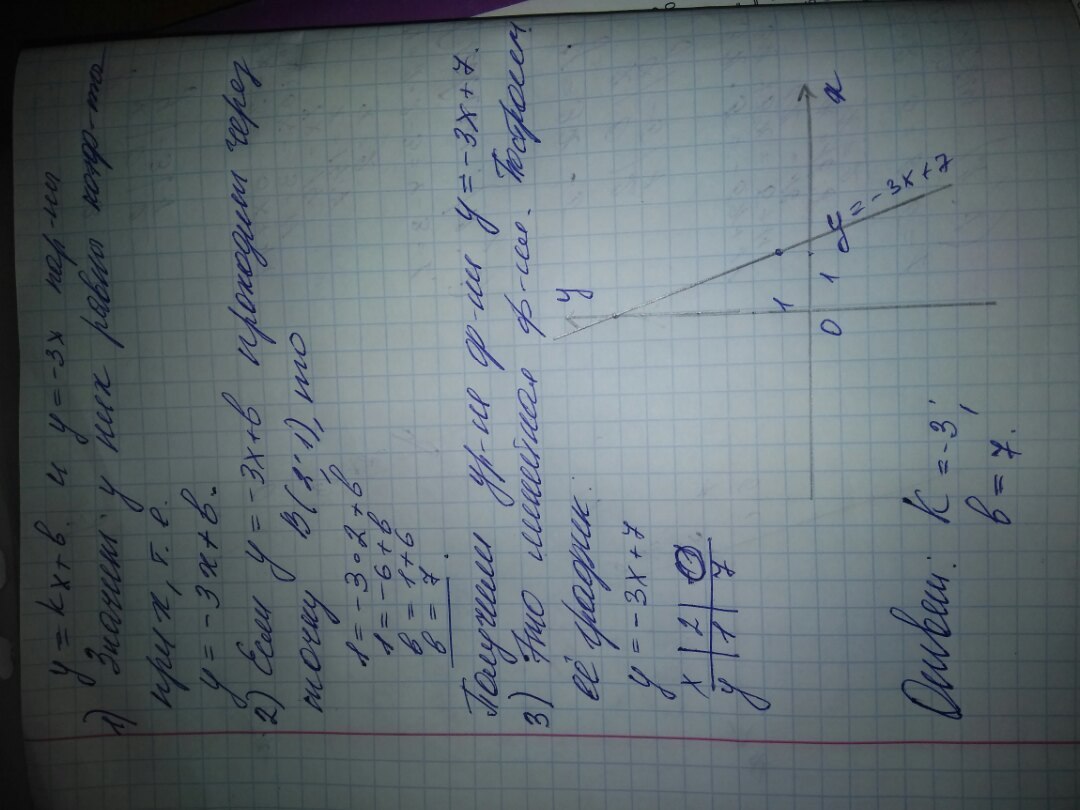 y = kx + b. и y = -3x пар-ны
1) Значит у них равны коэф-ты
при x, т. е.
y = -3x + b.
2) Если y = -3x + b проходит через
точку B(2;1), то
1 = -3·2 + b
1 = -6 + b
b = 1 + 6
b = 7.
Получили ур-ие ф-ии y = -3x + 7.
3) Это линейная ф-ия. Построим
её график.
y = -3x + 7
x | 2 | 0
y | 1 | 7
y
1
0 1
x
y = -3x + 7
Ответ: K = -3;
b = 7.